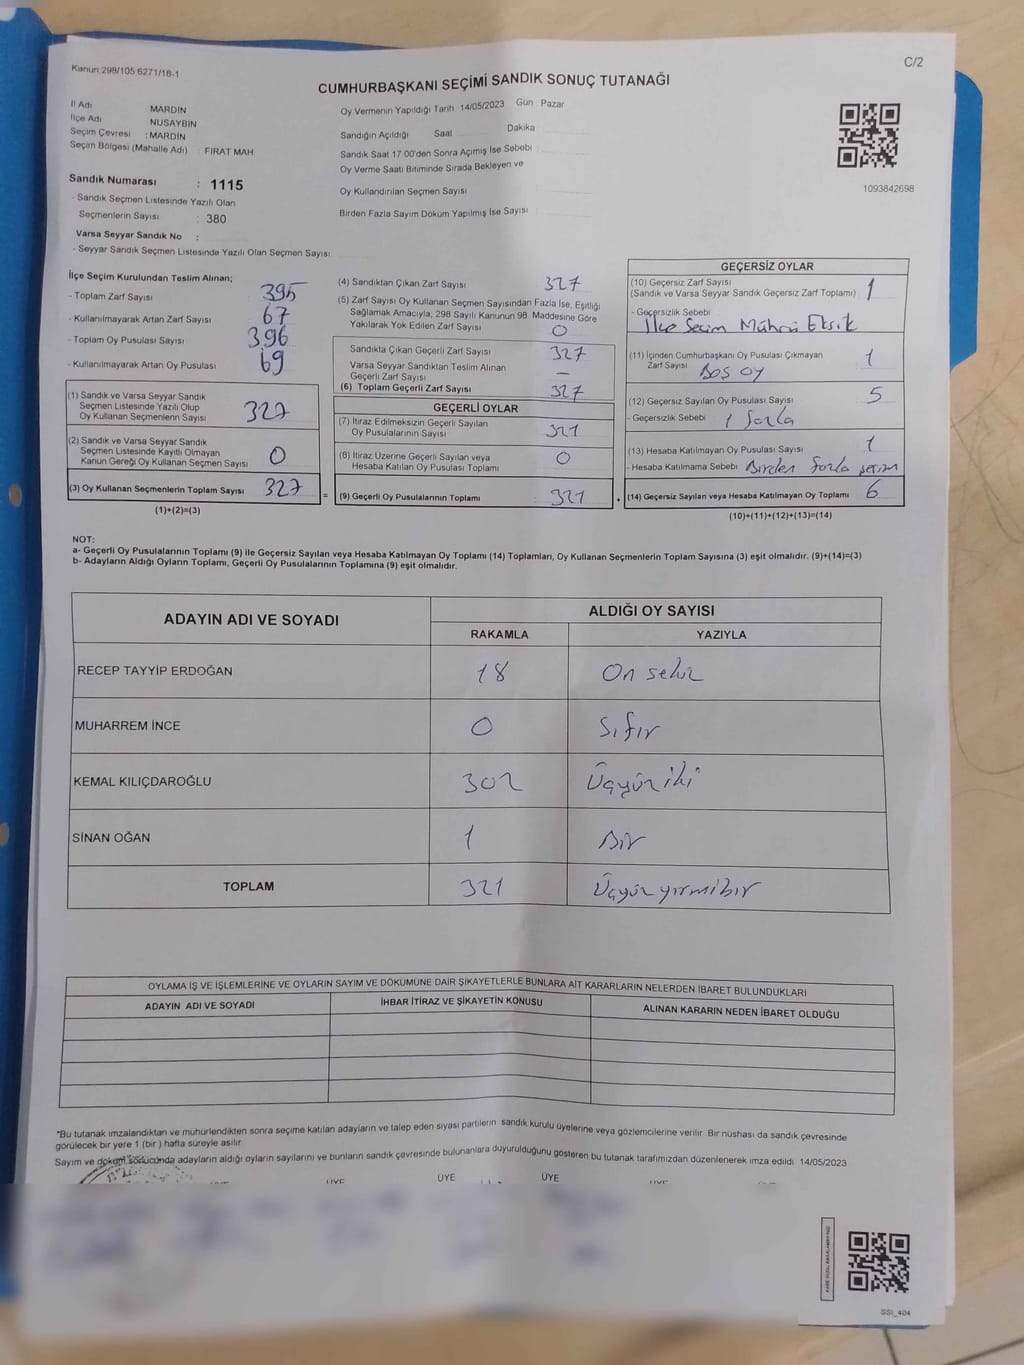 Kanun,298/105,6271/18-1
C/2
CUMHURBAŞKANI SEÇİMİ SANDIK SONUÇ TUTANAĞI
İl Adı MARDİN
İlçe Adı NUSAYBİN
Seçim Çevresi : MARDİN
Seçim Bölgesi (Mahalle Adı) : FIRAT MAH
Sandık Numarası : 1115
- Sandık Seçmen Listesinde Yazılı Olan
Seçmenlerin Sayısı : 380
Varsa Seyyar Sandık No :
- Seyyar Sandık Seçmen Listesinde Yazılı Olan Seçmen Sayısı
Oy Vermenin Yapıldığı Tarih 14/05/2023 Gün Pazar
Sandığın Açıldığı Saat Dakika
Sandık Saat 17:00'den Sonra Açımış İse Sebebi
Oy Verme Saati Bitiminde Sırada Bekleyen ve
Oy Kullandırılan Seçmen Sayısı
Birden Fazla Sayım Döküm Yapılmış İse Sayısı
1093842698
İlçe Seçim Kurulundan Teslim Alınan;
- Toplam Zarf Sayısı 395
- Kullanılmayarak Artan Zarf Sayısı 67
- Toplam Oy Pusulası Sayısı 396
- Kullanılmayarak Artan Oy Pusulası 69
(1) Sandık ve Varsa Seyyar Sandık
Seçmen Listesinde Yazılı Olup
Oy Kullanan Seçmenlerin Sayısı 327
(2) Sandık ve Varsa Seyyar Sandık
Seçmen Listesinde Kayıtlı Olmayan
Kanun Gereği Oy Kullanan Seçmen Sayısı 0
(3) Oy Kullanan Seçmenlerin Toplam Sayısı 327 =
(1)+(2)=(3)
(4) Sandıktan Çıkan Zarf Sayısı 327
(5) Zarf Sayısı Oy Kullanan Seçmen Sayısından Fazla İse, Eşitliği
Sağlamak Amacıyla, 298 Sayılı Kanunun 98. Maddesine Göre
Yakılarak Yok Edilen Zarf Sayısı 0
Sandıkta Çıkan Geçerli Zarf Sayısı 327
Varsa Seyyar Sandıktan Teslim Alınan
Geçerli Zarf Sayısı —
(6) Toplam Geçerli Zarf Sayısı 327
GEÇERLİ OYLAR
(7) İtiraz Edilmeksizin Geçerli Sayılan
Oy Pusulalarının Sayısı 321
(8) İtiraz Üzerine Geçerli Sayılan veya
Hesaba Katılan Oy Pusulası Toplamı 0
(9) Geçerli Oy Pusulalarının Toplamı : 321 +
GEÇERSİZ OYLAR
(10) Geçersiz Zarf Sayısı
(Sandık ve Varsa Seyyar Sandık Geçersiz Zarf Toplamı) 1
- Geçersizlik Sebebi
İlçe Seçim Mührü Eksik
(11) İçinden Cumhurbaşkanı Oy Pusulası Çıkmayan
Zarf Sayısı Boş oy 1
(12) Geçersiz Sayılan Oy Pusulası Sayısı 5
- Geçersizlik Sebebi 1 fazla
(13) Hesaba Katılmayan Oy Pusulası Sayısı 1
- Hesaba Katılmama Sebebi Birden fazla seçim
(14) Geçersiz Sayılan veya Hesaba Katılmayan Oy Toplamı 6
(10)+(11)+(12)+(13)=(14)
NOT:
a- Geçerli Oy Pusulalarının Toplamı (9) ile Geçersiz Sayılan veya Hesaba Katılmayan Oy Toplamı (14) Toplamları, Oy Kullanan Seçmenlerin Toplam Sayısına (3) eşit olmalıdır. (9)+(14)=(3)
b- Adayların Aldığı Oyların Toplamı, Geçerli Oy Pusulalarının Toplamına (9) eşit olmalıdır.
ADAYIN ADI VE SOYADI ALDIĞI OY SAYISI
RAKAMLA YAZIYLA
RECEP TAYYİP ERDOĞAN 18 On sekiz
MUHARREM İNCE 0 Sıfır
KEMAL KILIÇDAROĞLU 302 Üçyüz iki
SİNAN OĞAN 1 Bir
TOPLAM 321 Üçyüz yirmibir
OYLAMA İŞ VE İŞLEMLERİNE VE OYLARIN SAYIM VE DÖKÜMÜNE DAİR ŞİKAYETLERLE BUNLARA AİT KARARLARIN NELERDEN İBARET BULUNDUKLARI
ADAYIN ADI VE SOYADI İHBAR İTİRAZ VE ŞİKAYETİN KONUSU ALINAN KARARIN NEDEN İBARET OLDUĞU
*Bu tutanak imzalandıktan ve mühürlendikten sonra seçime katılan adayların ve talep eden siyasi partilerin sandık kurulu üyelerine veya gözlemcilerine verilir. Bir nüshası da sandık çevresinde
görülecek bir yere 1 (bir) hafta süreyle asılır.
Sayım ve döküm sonucunda adayların aldığı oyların sayılarını ve bunların sandık çevresinde bulunanlara duyurulduğunu gösteren bu tutanak tarafımızdan düzenlenerek imza edildi. 14/05/2023
ÜYE ÜYE ÜYE ÜYE
SSI_404